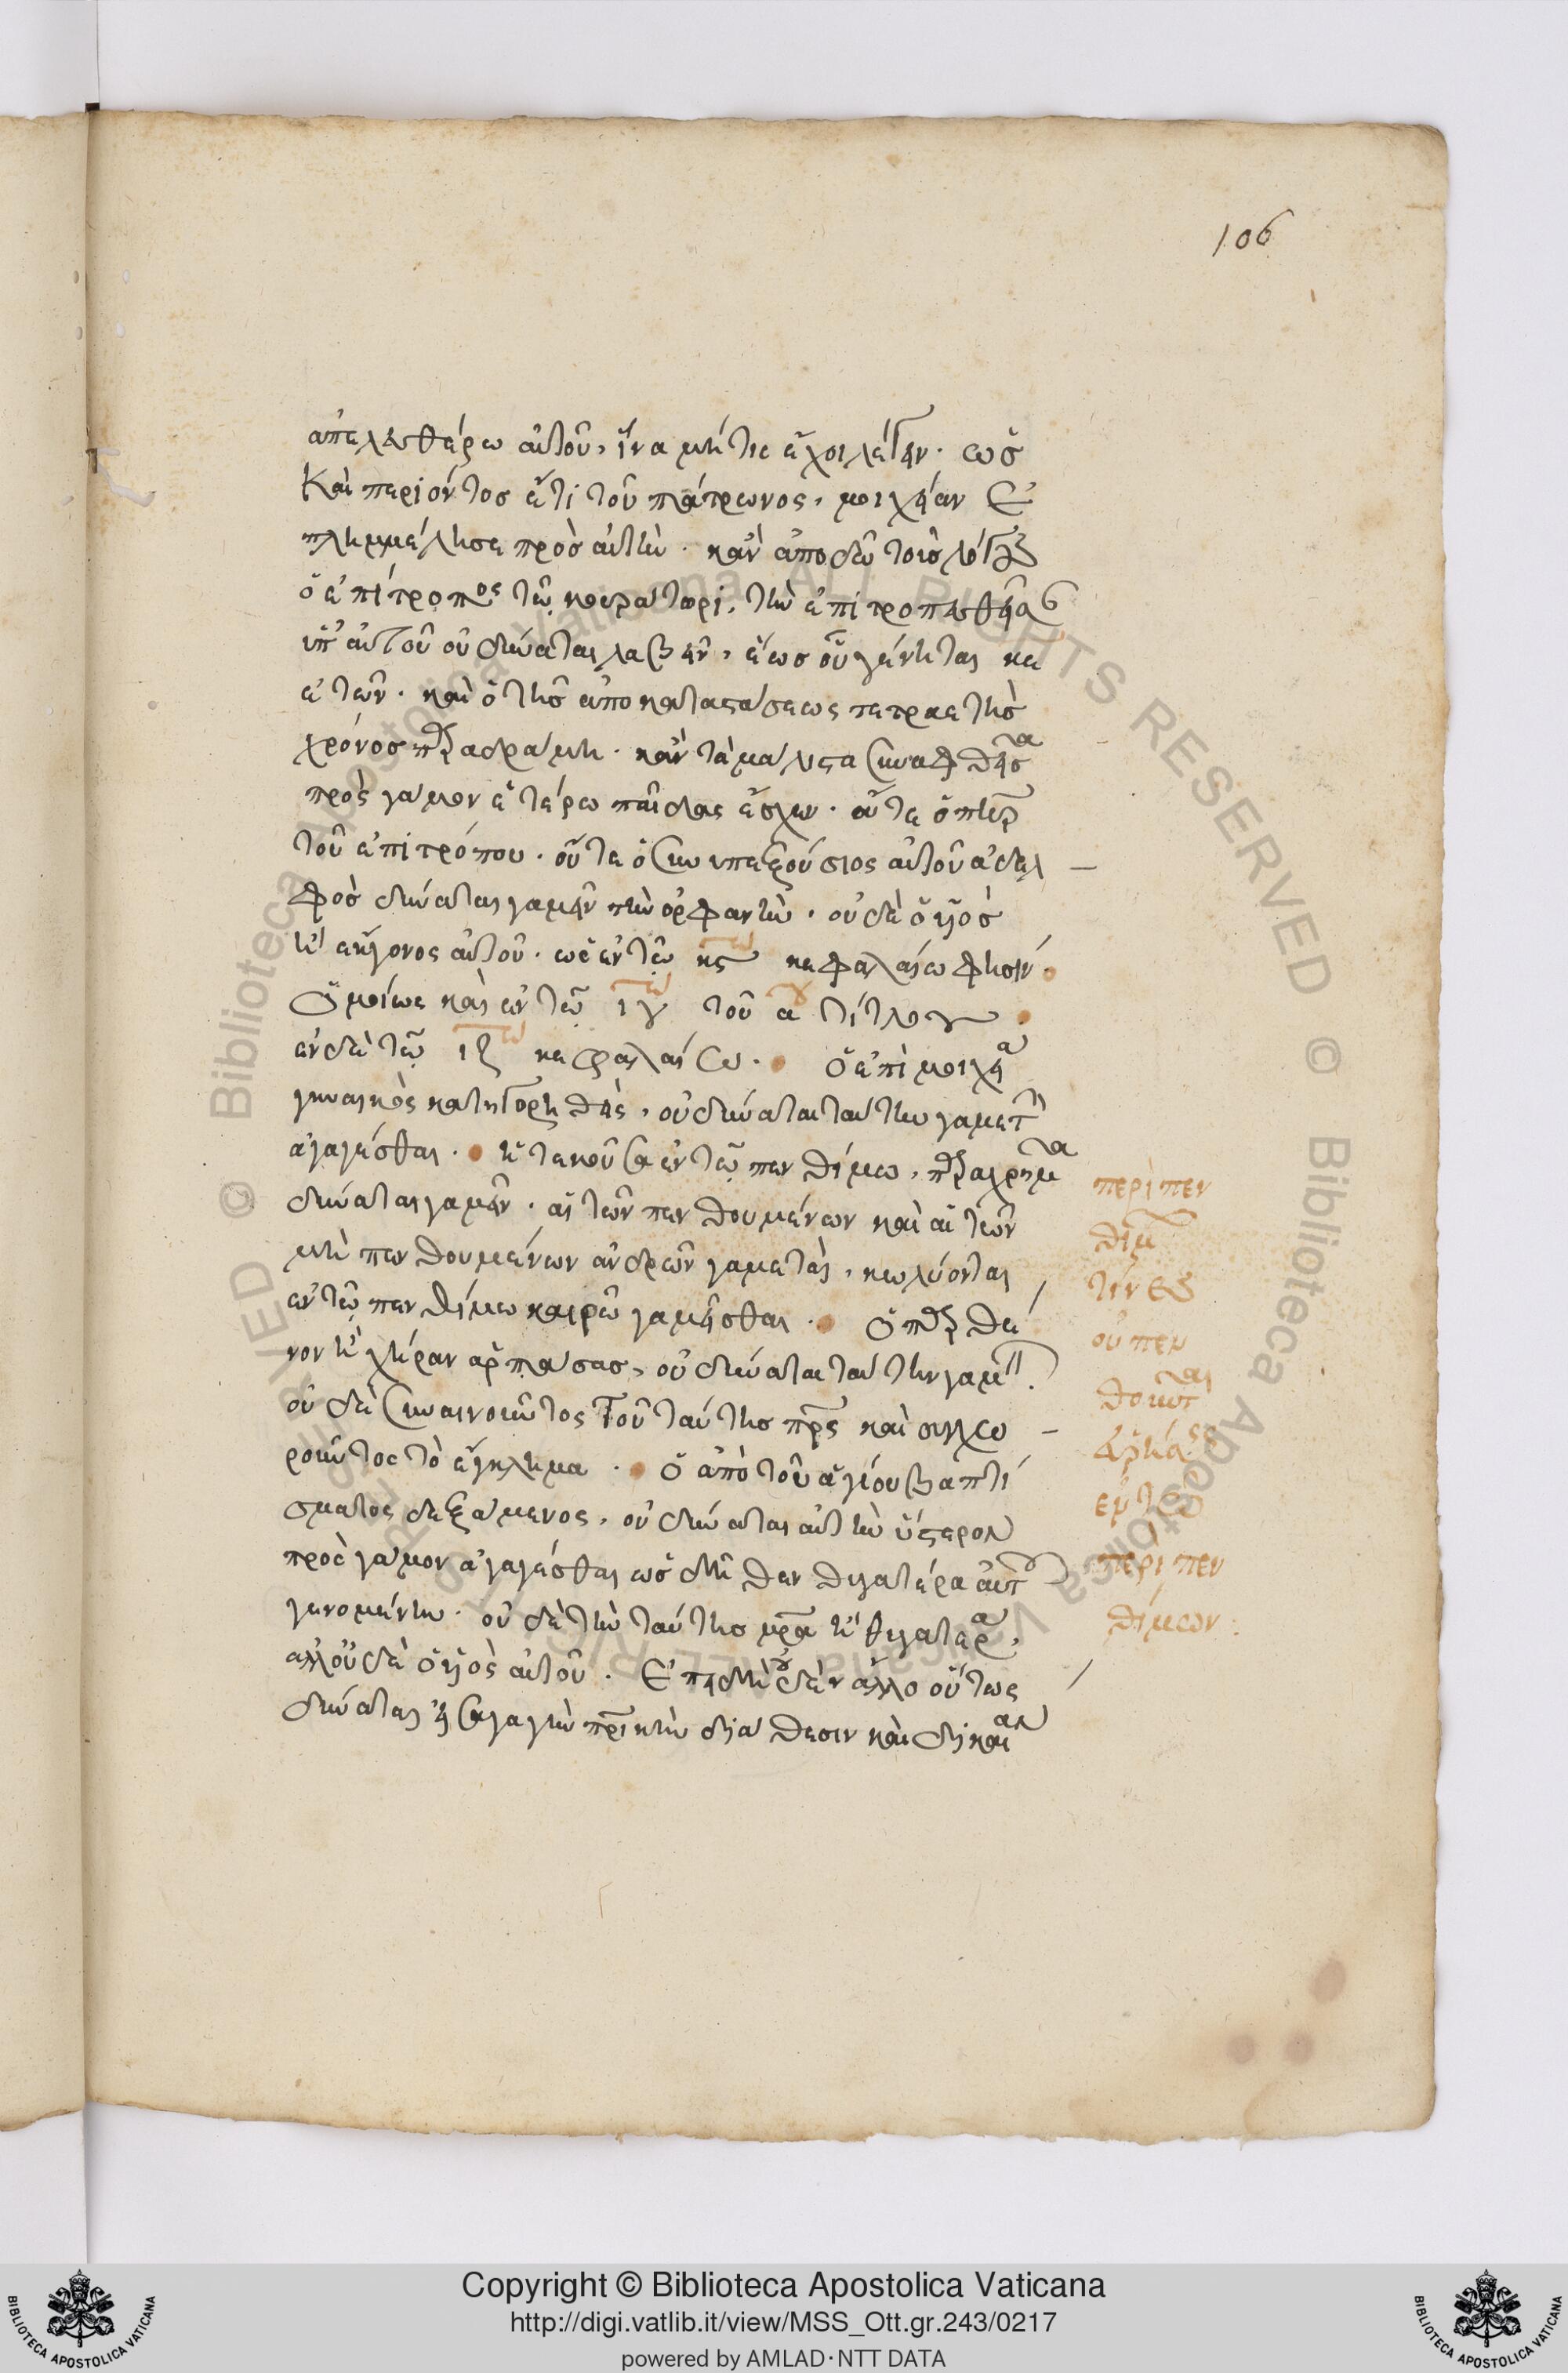 106
ἀπελευθέρω αὐτοῦ, ἵνα μή τις ἔχοι λέγειν· ὡς
καὶ περιόντος ἔτι τοῦ πάτρωνος, μοιχείαν ἐ
πλημμέλησε πρὸς αὐτήν· κἂν ἀποδῶ τοὺς λόγους
ὁ ἐπίτροπος τῷ κουράτωρι, τὴν ἐπιτροπευθεῖσαν
ὑπ' αὐτοῦ οὐ δύναται λαβεῖν, ἕως οὗ γένηται κε
ἐτῶν· καὶ ὁ τῆς ἀποκαταστάσεως τετραετὴς
χρόνος παραδράμη· κἂν τὰ μάλιστα συναφθεῖσα
πρὸς γάμον ἑτέρω παῖδας ἔσχεν· οὔτε ὁ πατὴρ
τοῦ ἐπιτρόπου· οὔτε ὁ συνυπεξούσιος αὐτοῦ ἀδελ
φὸς δύναται γαμεῖν τὴν ὀρφανήν· οὐδὲ ὁ υἱὸς
ἢ ἔκγονος αὐτοῦ· ὡς ἐν τῷ κϛ κεφαλαίω φησίν·
Ὁμοίως καὶ ἐν τῷ ιγ τοῦ α τίτλου
ἐν δὲ τῷ ιζ κεφαλαίω· ὁ ἐπὶ μοιχεία
γυναικὸς κατηγορηθείς, οὐ δύναται ταύτην γαμετὴν
ἀγαγέσθαι· ἡ τεκοῦσα ἐν τῷ πενθίμω, παραχρῆμα
δύναται γαμεῖν· αἱ τῶν πενθουμένων καὶ αἱ τῶν
μὴ πενθουμένων ἀνδρῶν γαμεταί, κωλύονται
ἐν τῷ πενθίμω καιρῶ γαμεῖσθαι· ὁ παρθέ
νον ἢ χήραν ἁρπάσας, οὐ δύναται ταύτην γαμεῖν·
οὐδὲ συναινοῦντος τοῦ ταύτης πρς καὶ συγχω
ροῦντος τὸ ἔγκλημα· ὁ ἀπὸ τοῦ ἁγίου βαπτί
σματος δεξάμενος, οὐ δύναται αὐτὴν ὕστερον
πρὸς γάμον ἀγαγέσθαι ὡς δῆθεν θυγατέρα αὐτοῦ
γενομένην· οὐδὲ τὴν ταύτης μρα ἢ θυγατέρα,
ἀλλ' οὐδὲ ὁ υἱὸς αὐτοῦ· Ἐπειδὴ οὐδὲν ἄλλο οὕτως
δύναται εἰσαγαγεῖν πρικὴν διάθεσιν καὶ δικαίαν
περὶ πεν
θίμ
τίνες
οὐ πεν
θοῦνται
ἐν τῷ
περὶ πεν
θίμων·
Copyright © Biblioteca Apostolica Vaticana
http://digi.vatlib.it/view/MSS_Ott.gr.243/0217
powered by AMLAD·NTT DATA